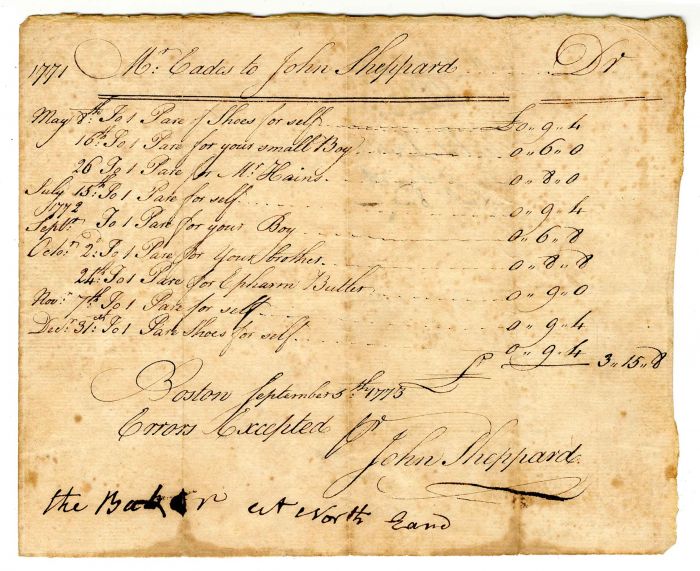 1771 Mr Eades to John Sheppard Dr
May 8th To 1 Pare of Shoes for self £0 „ 9 „ 4
16th: To 1 Pare for your small Boy 0 „ 6 „ 0
26 To 1 Pare for Mr Hains 0 „ 8 „ 0
July 15th: To 1 Pare for self 0 „ 9 „ 4
1772
Septbr To 1 Pare for your Boy 0 „ 6 „ 8
Octor 2d: To 1 Pare for Your brother 0 „ 8 „ 8
24th: To 1 Pare for Epharm Butler 0 „ 9 „ 0
Novr: 7th: To 1 Pare for self 0 „ 9 „ 4
Decr: 31st: To 1 Pare Shoes for self 0 „ 9 „ 4
£ 3 „ 15 „ 8
Boston September 5th, 1773
Errors Excepted Pr
John Sheppard
the Baker at North Eand